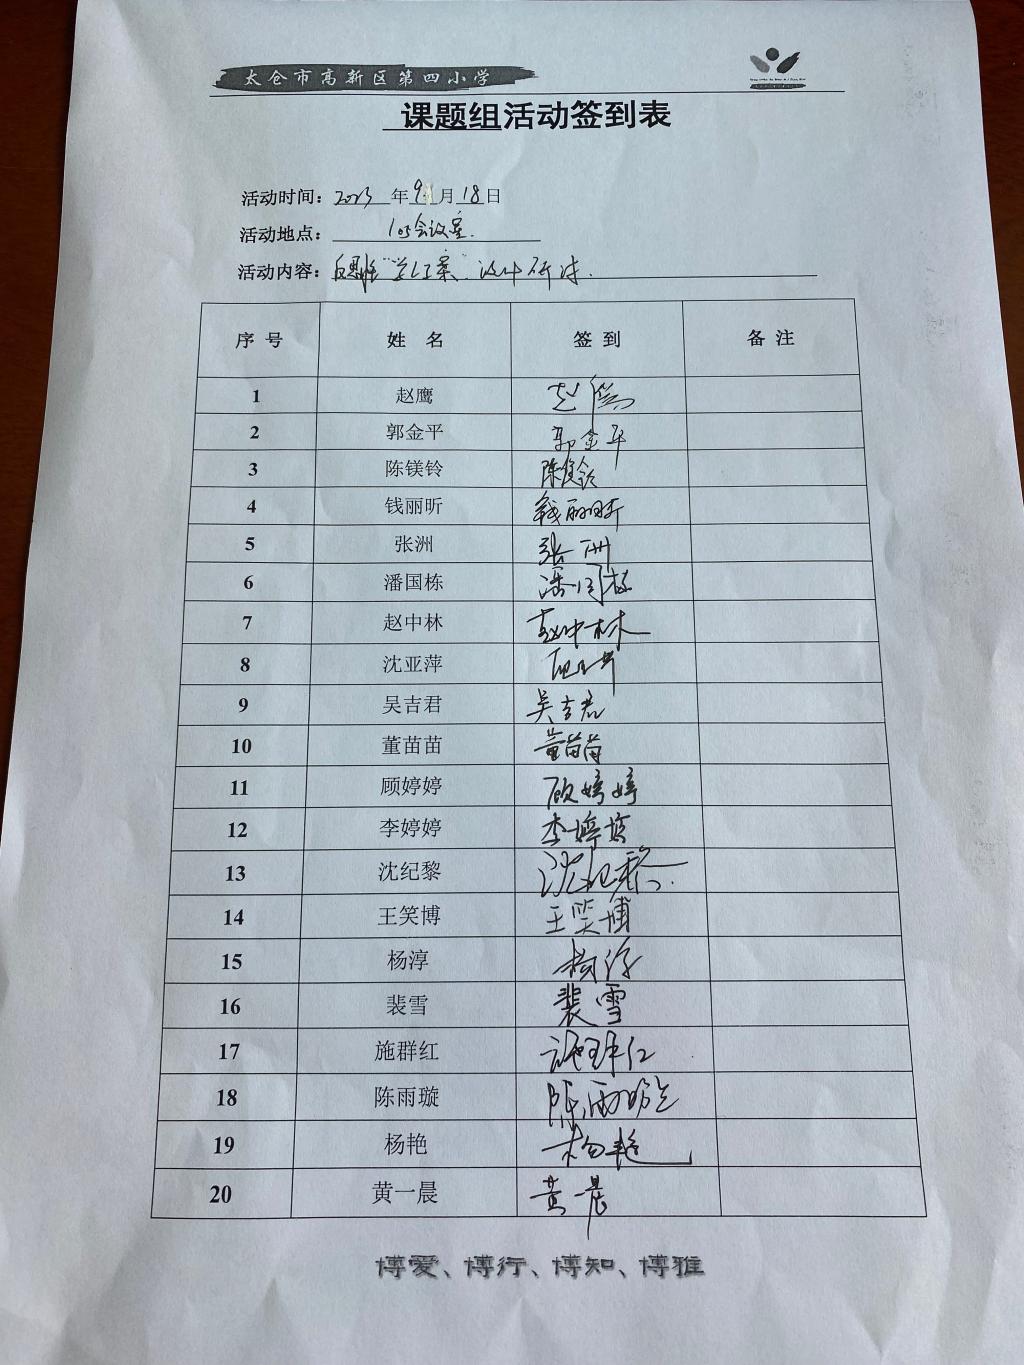 太仓市高新区第四小学
课题组活动签到表
活动时间：2023年9月18日
活动地点：105会议室.
活动内容：反思性“学历案”设计研讨.
序号 姓名 签到 备注
1 赵鹰 赵鹰
2 郭金平 郭金平
3 陈镁铃 陈镁铃
4 钱丽昕 钱丽昕
5 张洲 张洲
6 潘国栋 潘国栋
7 赵中林 赵中林
8 沈亚萍
9 吴吉君 吴吉君
10 董苗苗 董苗苗
11 顾婷婷 顾婷婷
12 李婷婷 李婷婷
13 沈纪黎 沈纪黎
14 王笑博 王笑博
15 杨淳 杨淳
16 裴雪 裴雪
17 施群红 施群红
18 陈雨璇 陈雨璇
19 杨艳 杨艳
20 黄一晨 黄一晨
博爱、博行、博知、博雅